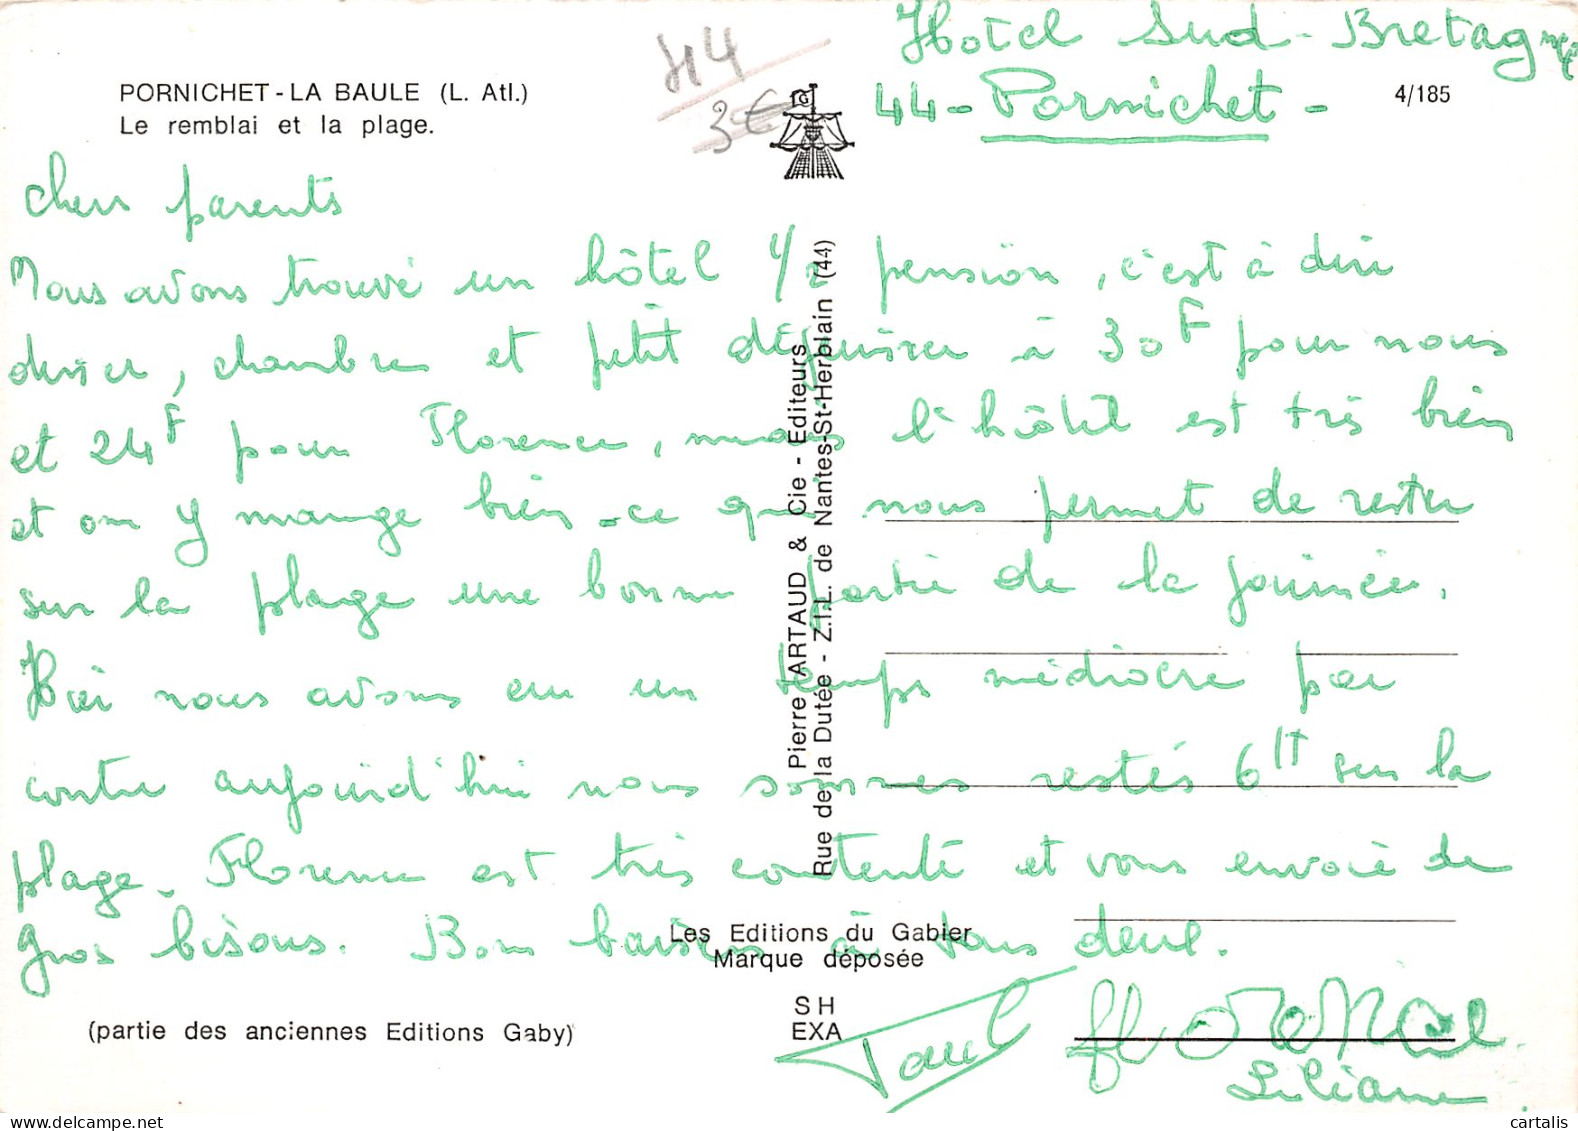 Hotel Sud-Bretagne
44 - Pornichet -
4/185
44
3€
PORNICHET - LA BAULE (L. Atl.)
Le remblai et la plage.
Chers parents
Nous avons trouvé un hôtel 1/2 pension, c'est à dire
dîner, chambre et petit déjeuner à 30F pour nous
et 24F pour Florence, mais l'hôtel est très bien
et on y mange bien - ce qui nous permet de rester
sur la plage une bonne partie de la journée.
Hier nous avons eu un temps médiocre par
contre aujourd'hui nous sommes restés 6H sur la
plage. Florence est très contente et vous envoie de
gros bisous. Bons baisers à tous deux.
Paul
florence
Liliane
Pierre ARTAUD & Cie - Editeurs
Rue de la Dutée - Z.I.L. de Nantes-St-Herblain (44)
Les Editions du Gabier
Marque déposée
SH
EXA
(partie des anciennes Editions Gaby)
cartalis